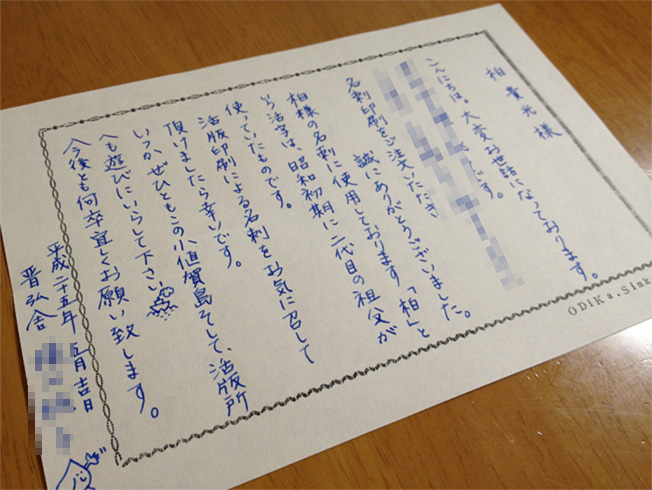 柏 貴光 様
こんにちは。大変お世話になっております。
です。
名刺印刷をご注文いただき
誠にありがとうございました。
柏様の名刺に使用しております「柏」と
いう活字は、昭和初期に二代目の祖父が
使っていたものです。
活版印刷による名刺をお気に召して
頂けましたら幸いです。
いつか、ぜひともこの小値賀島そして、活版所
へも遊びにいらして下さい
今後とも何卒宜しくお願い致します。
平成二十五年 五月吉日
晋弘舎